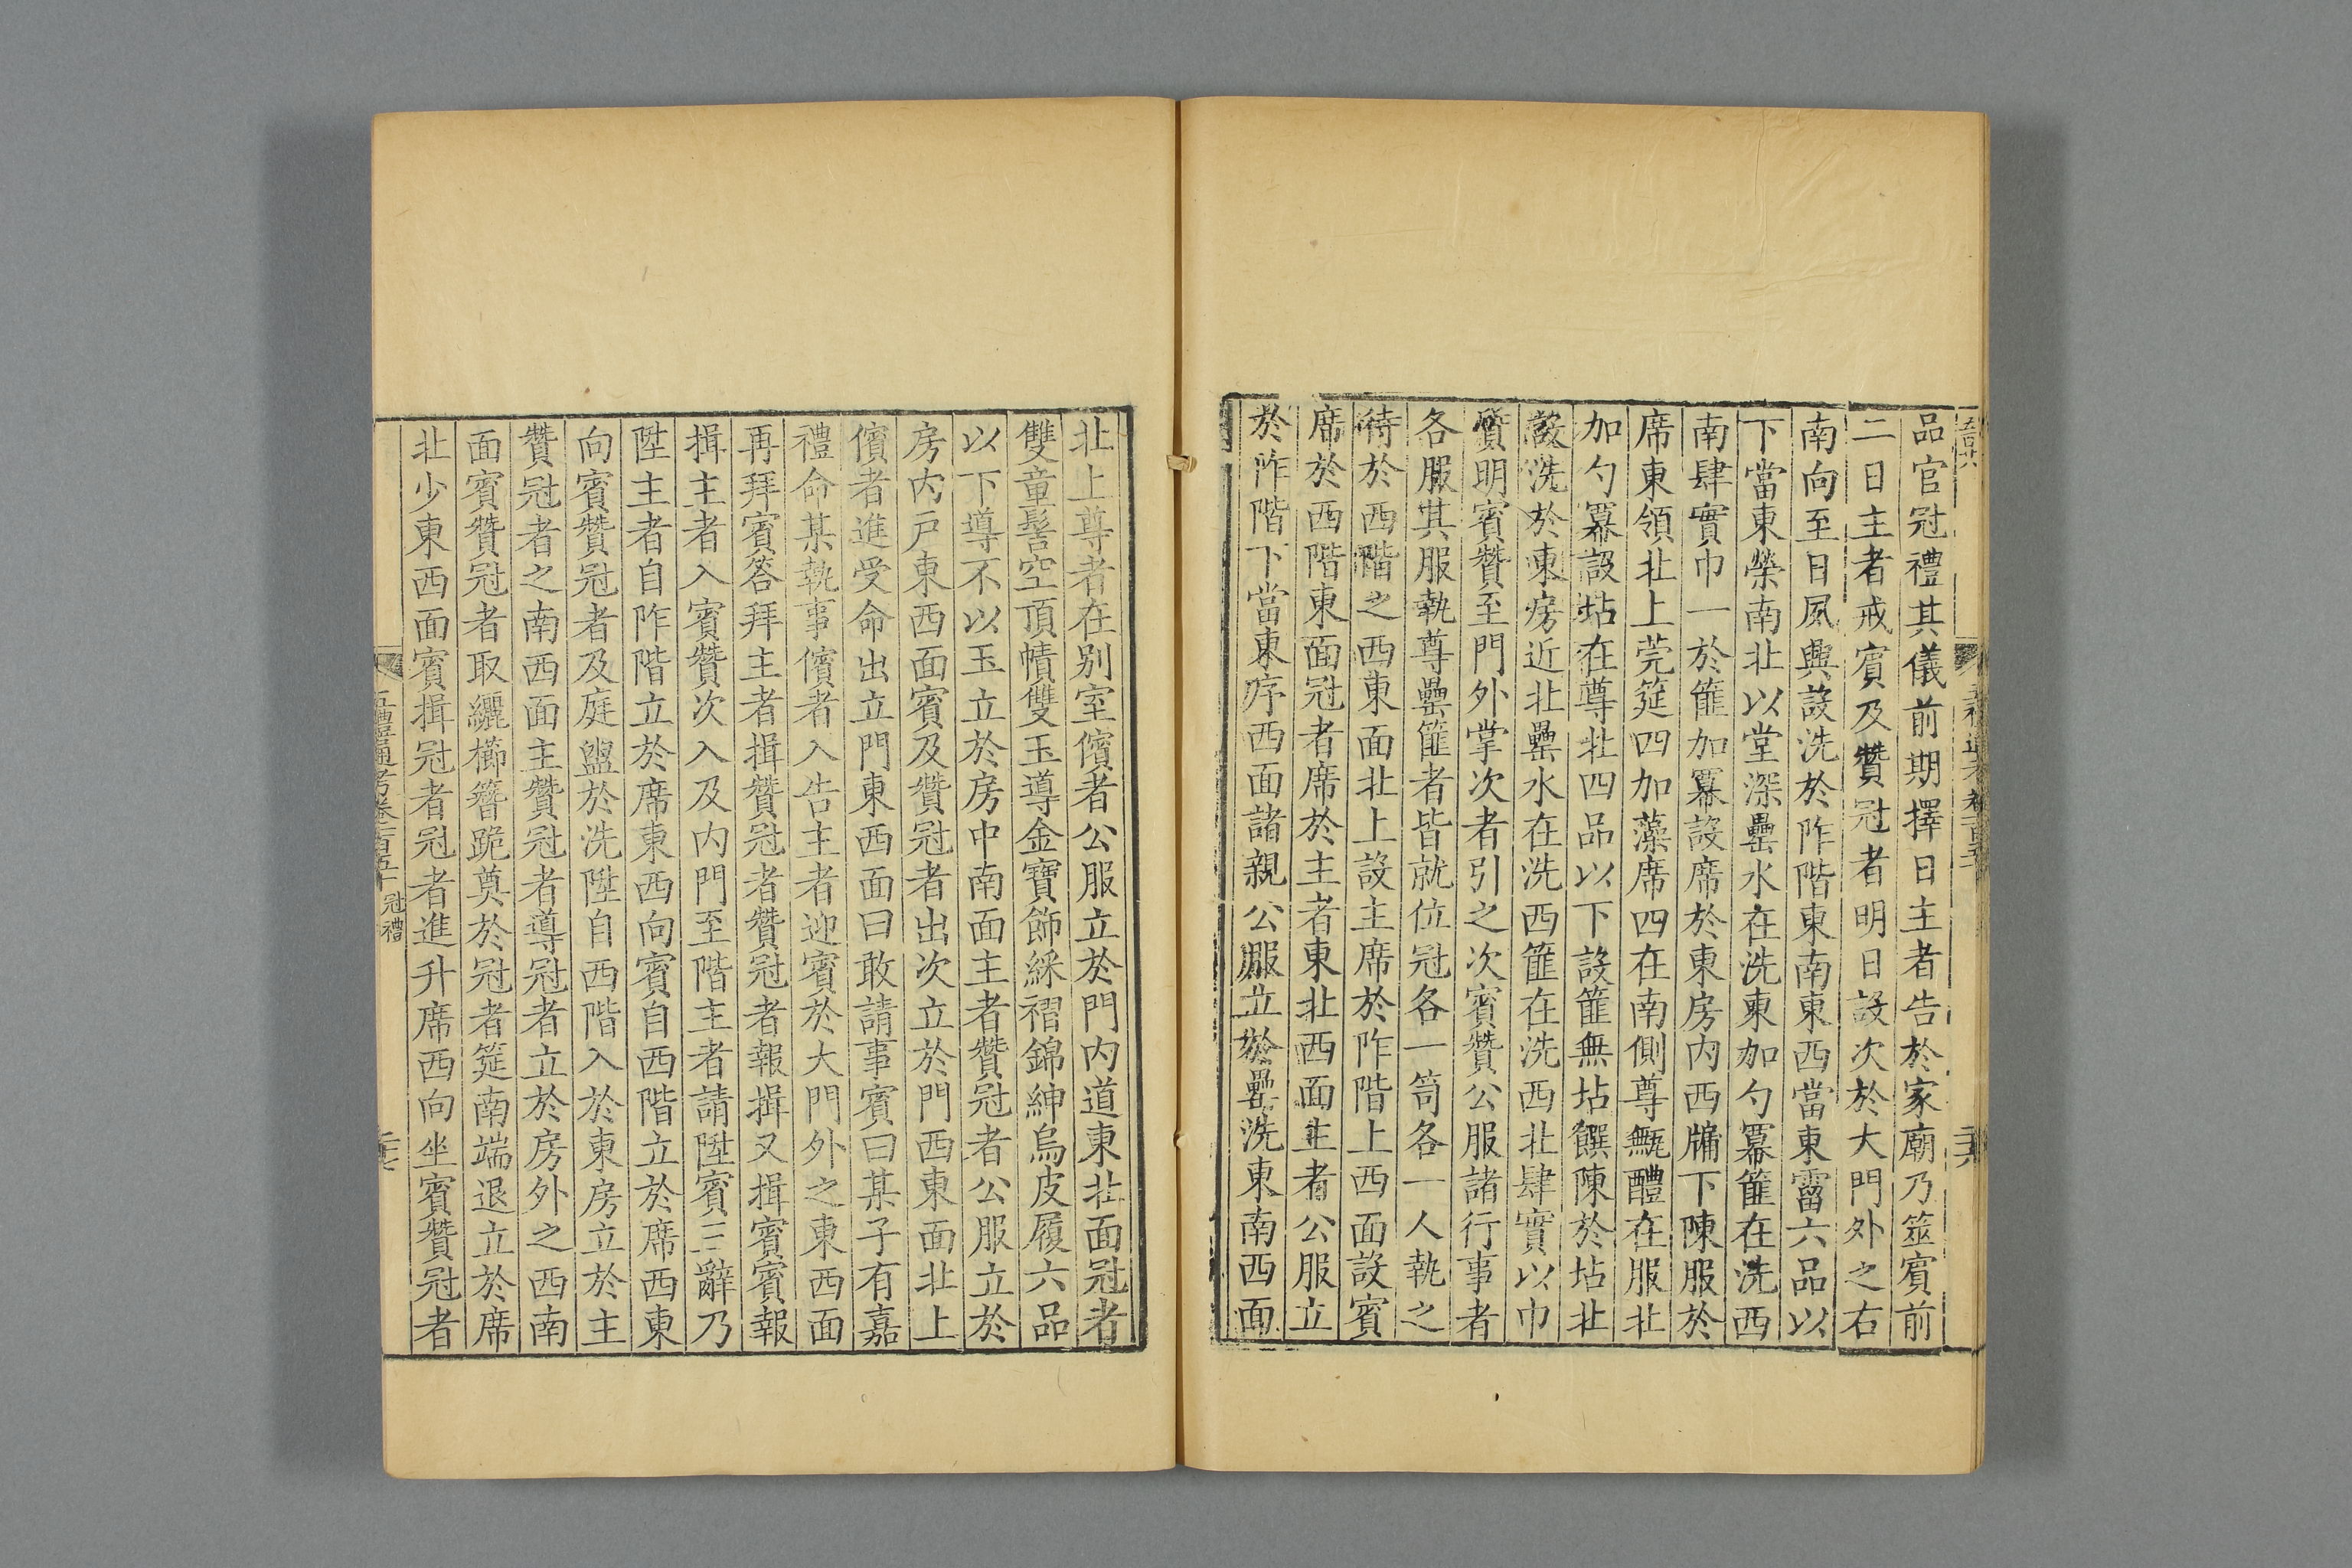 品官冠禮其儀前期擇日主者告於家廟乃筮賓前
二日主者戒賓及贊冠者明日設次於大門外之右
南向至日夙興設洗於阼階東南東西當東霤六品以
下當東榮南北以堂深罍水在洗東加勺冪篚在洗西
南肆實巾一於篚加冪設席於東房內西牖下陳服於
席東領北上莞筵四加藻席四在南側尊甒醴在服北
加勺冪設坫在尊北四品以下設篚無坫饌陳於坫北
設洗於東房近北罍水在洗西篚在洗西北肆實以巾
質明賓贊至門外掌次者引之次賓贊公服諸行事者
各服其服執尊罍篚者皆就位冠各一笥各一人執之
待於西階之西東面北上設主席於阼階上西面設賓
席於西階東面冠者席於主者東北西面主者公服立
於阼階下當東序西面諸親公服立於罍洗東南西面
北上尊者在別室儐者公服立於門內道東北面冠者
雙童髻空頂幘雙玉導金寶飾綵褶錦紳烏皮履六品
以下導不以玉立於房中南面主者贊冠者公服立於
房內戶東西面賓及贊冠者出次立於門西東面北上
儐者進受命出立門東西面曰敢請事賓曰某子有嘉
禮命某執事儐者入告主者迎賓於大門外之東西面
再拜賓答拜主者揖贊冠者贊冠者報揖又揖賓賓報
揖主者入賓贊次入及內門至階主者請陞賓三辭乃
陞主者自阼階立於席東西向賓自西階立於席西東
向賓贊冠者及庭盥於洗陞自西階入於東房立於主
贊冠者之南西面主贊冠者導冠者立於房外之西南
面賓贊冠者取纚櫛簪跪奠於冠者筵南端退立於席
北少東西面賓揖冠者冠者進升席西向坐賓贊冠者
五禮通考卷一百五十 冠禮
二十七